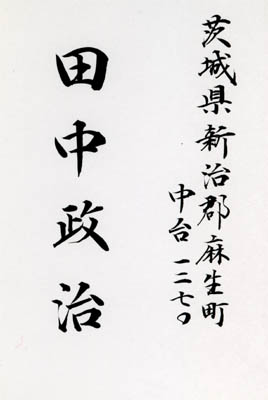 茨城県新治郡麻生町
中台一二七〇
田中政治